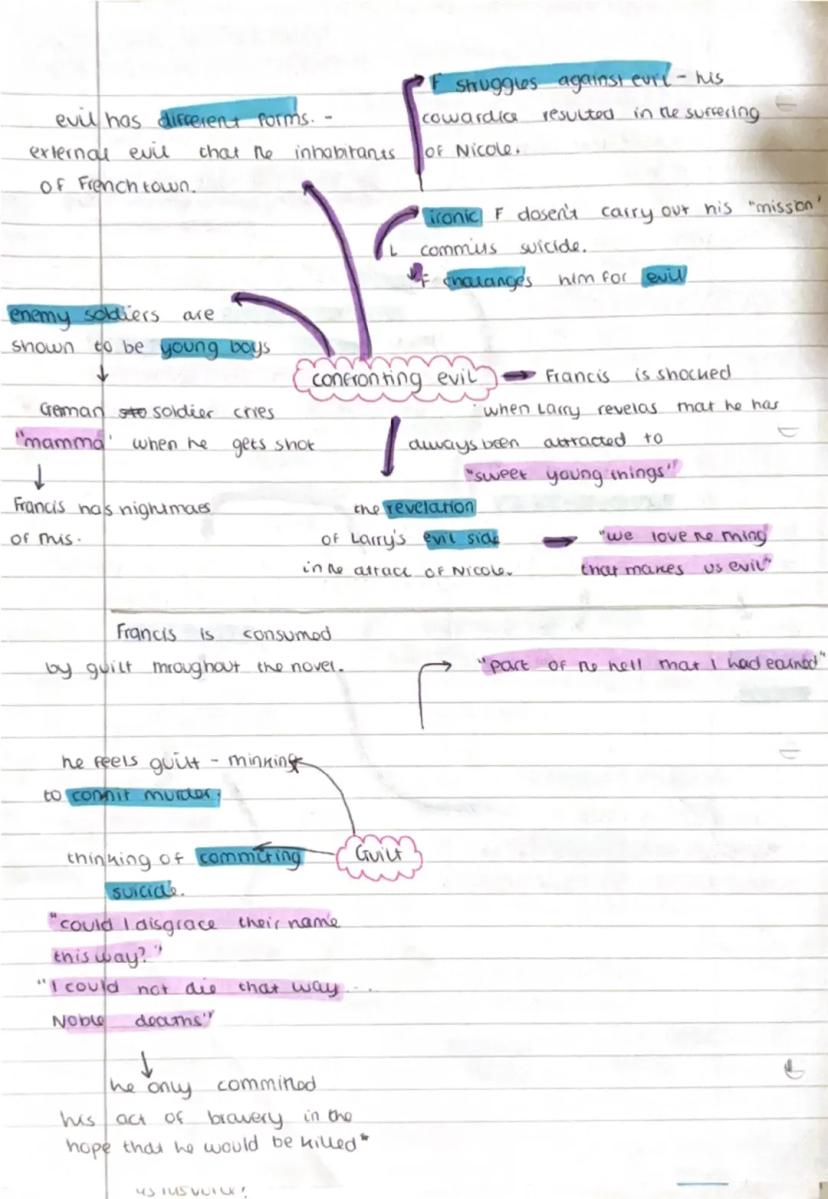 F struggles against evil - his
cowardice resulted in the suffering
of Nicole.
evil has different forms. -
external evil that the inhabitants
of Frenchtown.
ironic F dosen't carry out his "mission'
L commits suicide.
F challanges him for evil
enemy soldiers are
shown to be young boys
confronting evil
Francis is shocked
when Larry revelas that he has
always been attracted to
"sweet young things"
German soldier cries
"mamma' when he gets shot
Francis has nightmaes
of this.
the revelation
of Larry's evil side
in the attack of Nicole.
"we love the thing
that makes us evil"
Francis is consumed
by guilt throughout the novel.
"part of the hell that I had earned"
he feels guilt - thinking
to commit murder.
thinking of commiting
suicide.
Guilt
"could I disgrace their name
this way?"
"I could not die that way ...
Noble deaths"
he only committed
his act of bravery in the
hope that he would be killed*